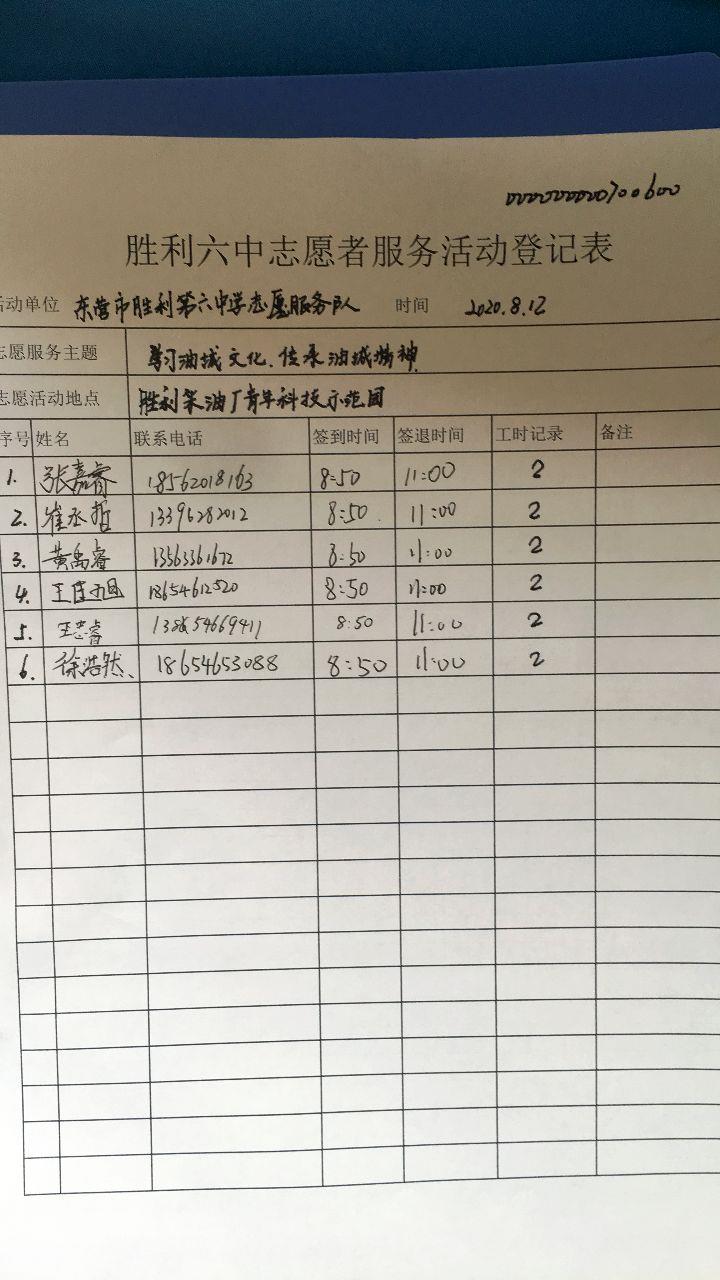 胜利六中志愿者服务活动登记表
活动单位 东营市胜利第六中学志愿服务队 时间 2020.8.12
志愿服务主题 学习油城文化、传承油城精神
志愿活动地点 胜利采油厂青年科技示范园
序号 姓名 联系电话 签到时间 签退时间 工时记录 备注
1. 张嘉睿 18562018163 8:50 11:00 2
2. 崔丞哲 13396282012 8:50 11:00 2
3. 黄禹睿 13563361672 8:50 11:00 2
4. 18654612520 8:50 11:00 2
5. 王志睿 8:50 11:00 2
6. 徐浩然 18654653088 8:50 11:00 2